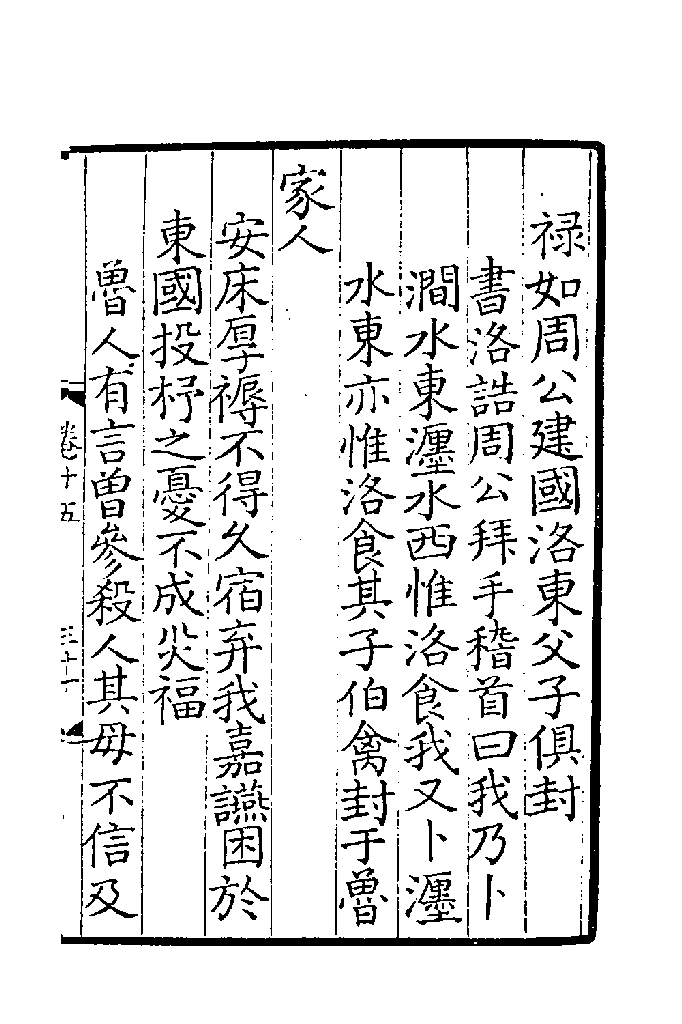 禄如周公建國洛東父子俱封
書洛誥周公拜手稽首曰我乃卜
澗水東瀍水西惟洛食我又卜瀍
水東亦惟洛食其子伯禽封于魯
家人
安床厚褥不得久宿弃我嘉讌困於
東國投杼之憂不成災福
魯人有言曽參殺人其母不信及
卷十五
三十一